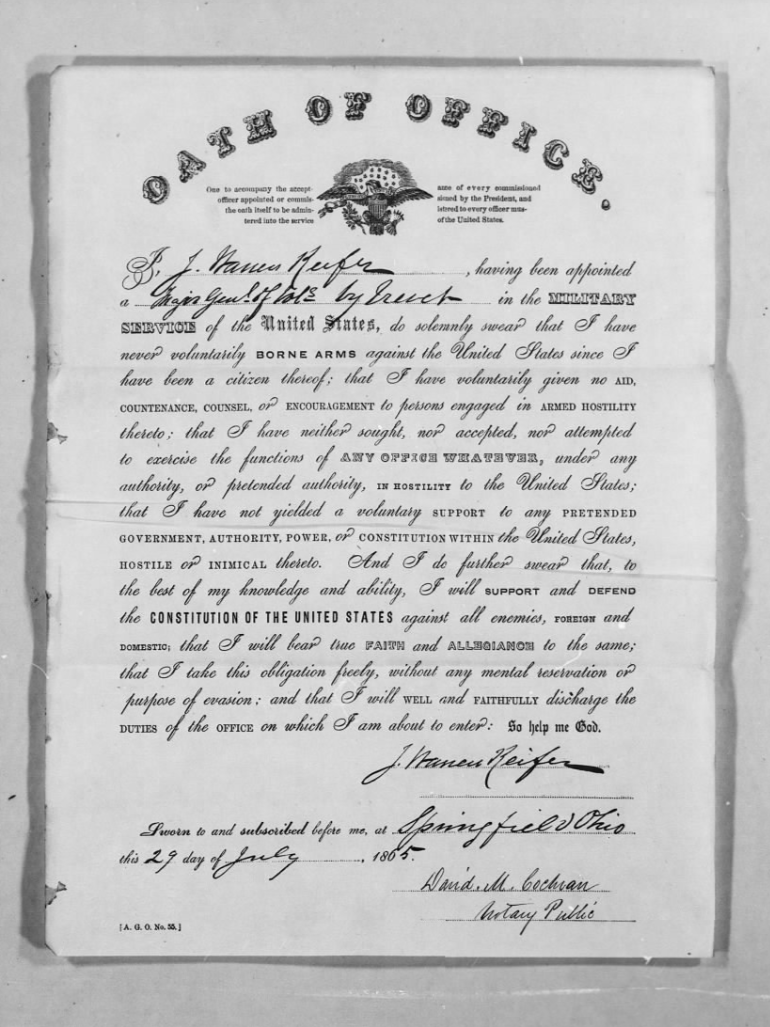 OATH OF OFFICE.
One to accompany the accept-
officer appointed or commis-
the oath itself to be admin-
tered into the service
ance of every commissioned
sioned by the President, and
istred to every officer mus-
of the United States.
I, J. Warren Keifer, having been appointed
a Major Genl. of Vols. by Brevet in the MILITARY
SERVICE of the United States, do solemnly swear that I have
never voluntarily BORNE ARMS against the United States since I
have been a citizen thereof; that I have voluntarily given no AID,
COUNTENANCE, COUNSEL, or ENCOURAGEMENT to persons engaged in ARMED HOSTILITY
thereto; that I have neither sought, nor accepted, nor attempted
to exercise the functions of ANY OFFICE WHATEVER, under any
authority, or pretended authority, IN HOSTILITY to the United States;
that I have not yielded a voluntary SUPPORT to any PRETENDED
GOVERNMENT, AUTHORITY, POWER, or CONSTITUTION WITHIN the United States,
HOSTILE or INIMICAL thereto. And I do further swear that, to
the best of my knowledge and ability, I will SUPPORT and DEFEND
the CONSTITUTION OF THE UNITED STATES against all enemies, FOREIGN and
DOMESTIC; that I will bear true FAITH and ALLEGIANCE to the same;
that I take this obligation freely, without any mental reservation or
purpose of evasion; and that I will WELL and FAITHFULLY discharge the
DUTIES of the OFFICE on which I am about to enter: So help me God.
J. Warren Keifer
Sworn to and subscribed before me, at Springfield Ohio
this 29 day of July, 1865.
David. M. Cochran
Notary Public
[A. G. O. No. 55.]